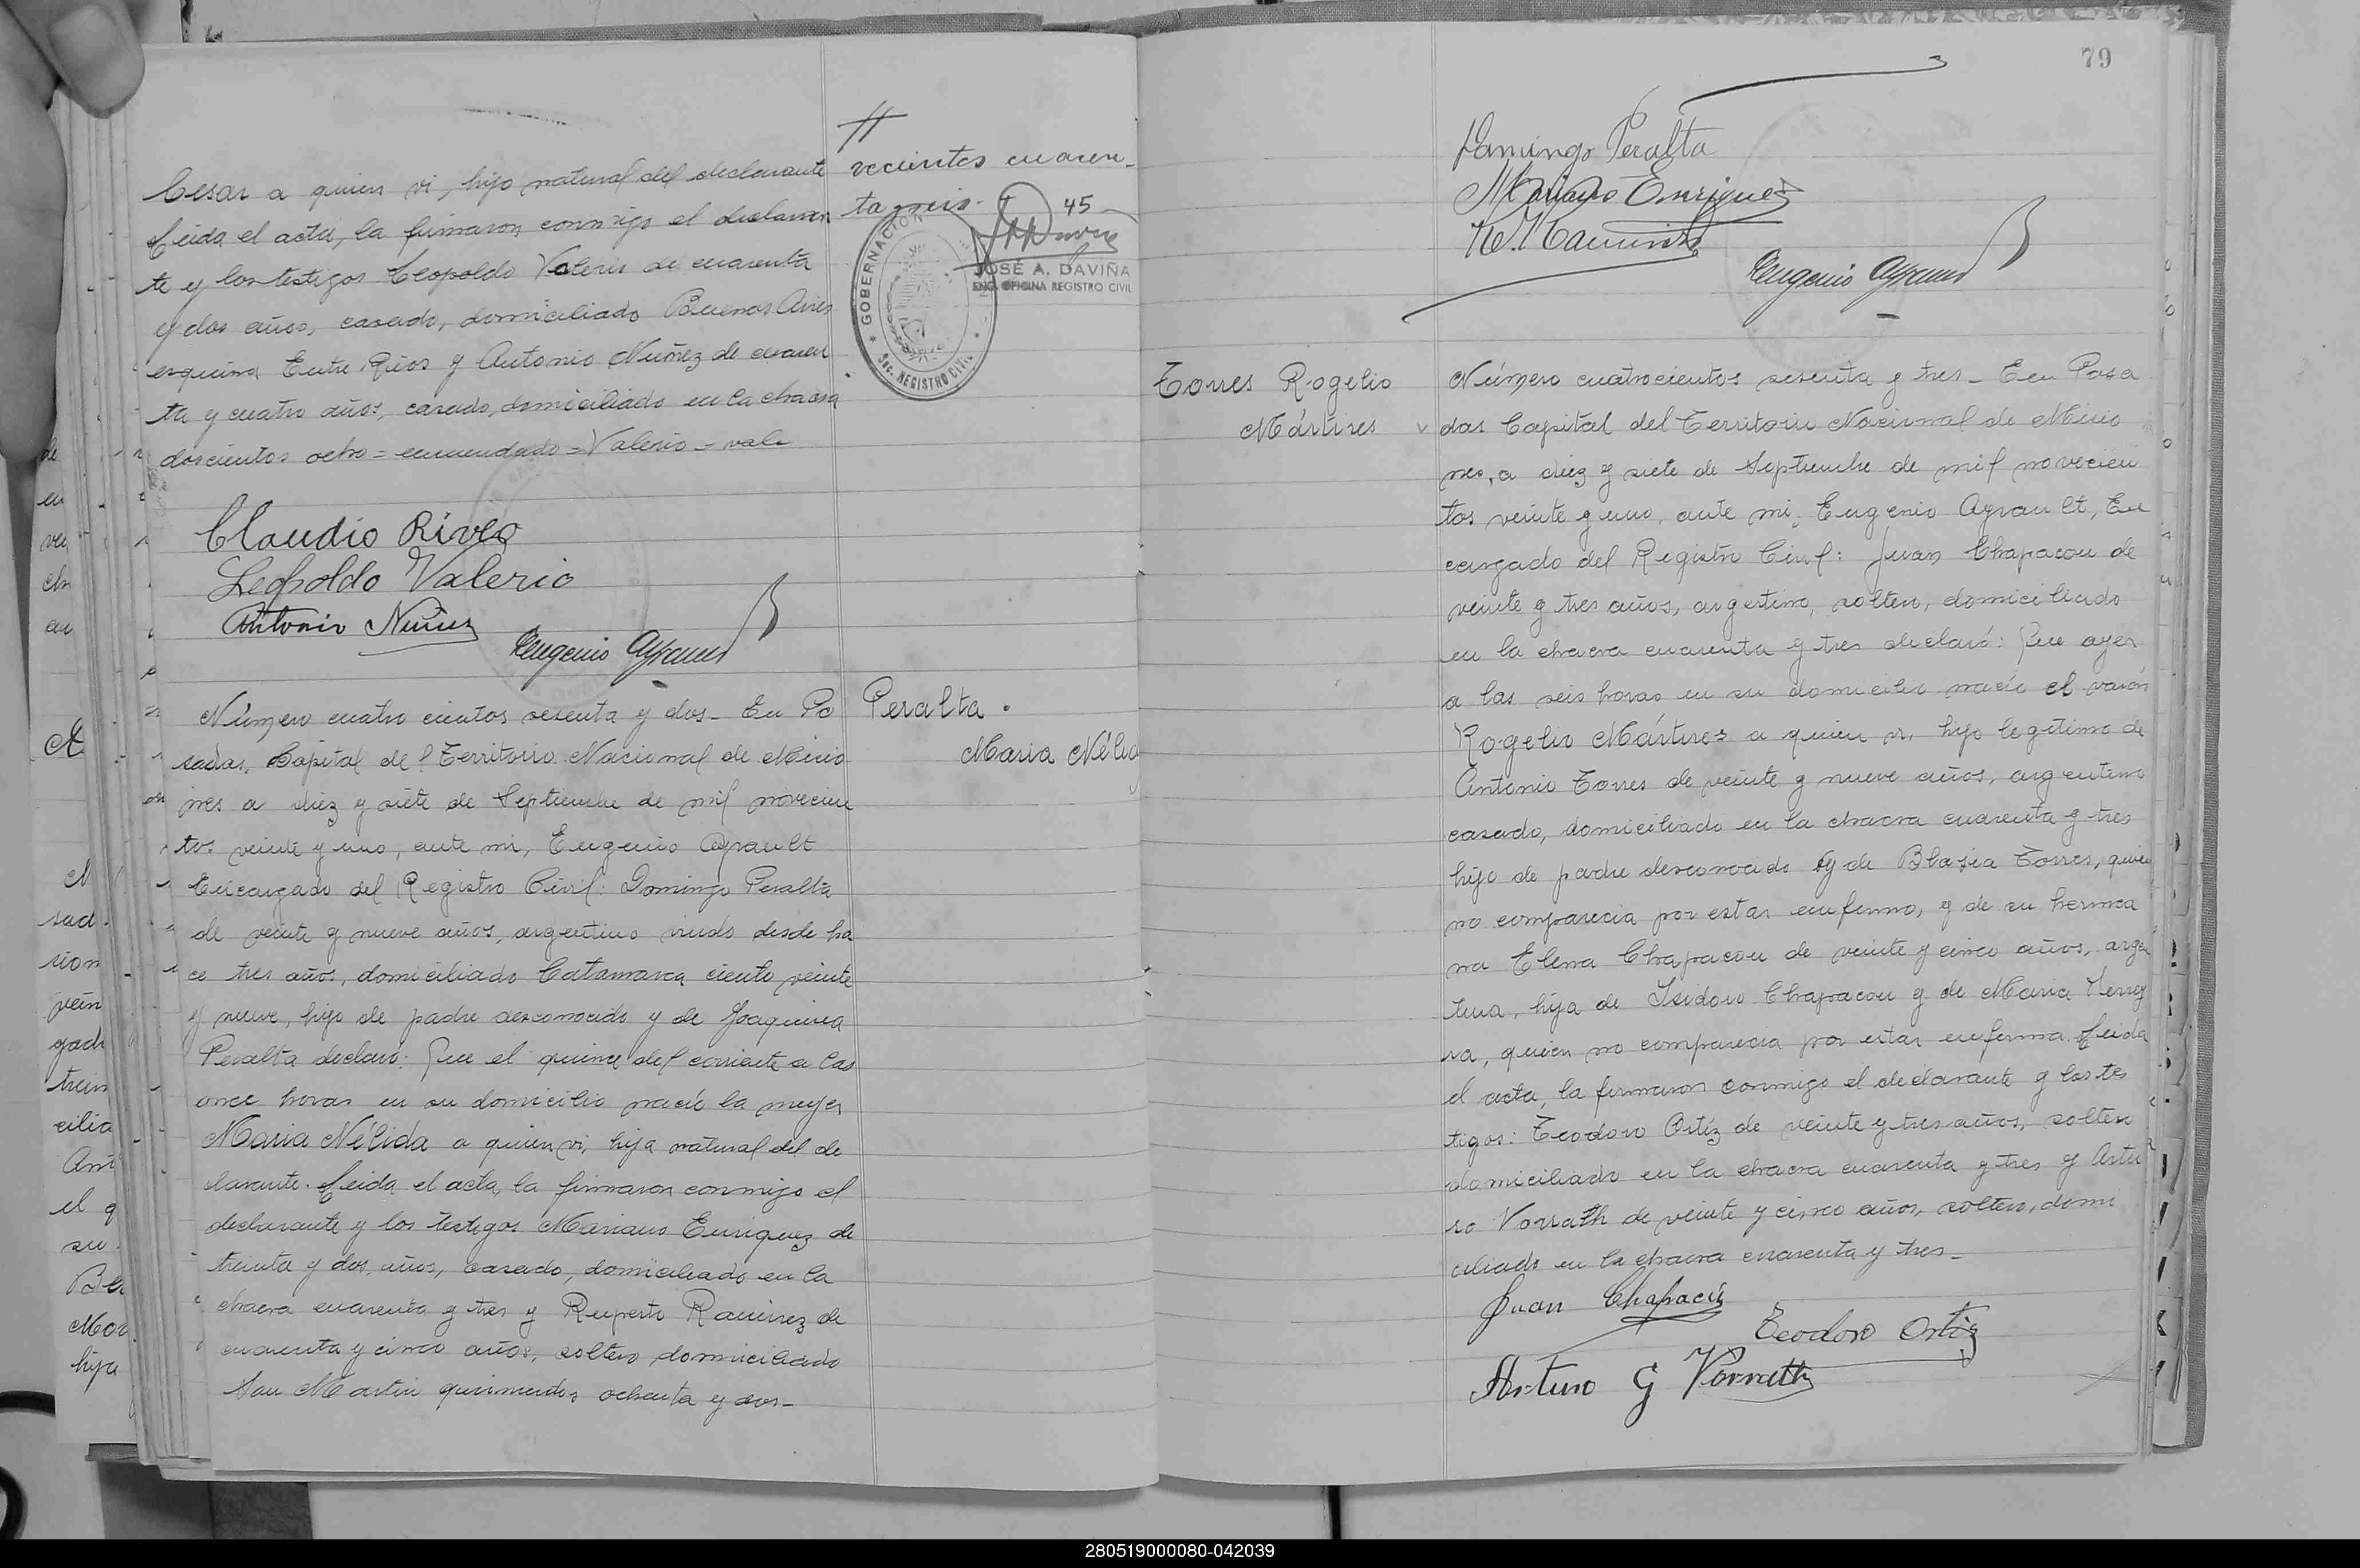 79
Cesar a quien vi, hijo natural del declarante
Leida el acta, la firmaron conmigo el declaran
te y los testigos Leopoldo Valerio de cuarenta
y dos años, casado, domiciliado Buenos Aires
esquina Entre Rios y Antonio Nuñez de cuaren
ta y cuatro años, casado, domiciliado en la chacra
doscientos ocho = enmendado = Valerio = vale
Claudio Rivero
Leopoldo Valerio
Antonio Nuñez
Eugenio Ayrault
vecientos cuaren-
ta y seis.
45
GOBERNACION
Sec. REGISTRO CIVIL
JOSÉ A. DAVIÑA
ENC. OFICINA REGISTRO CIVIL
Peralta.
Maria Nélida
Número cuatro cientos sesenta y dos- En Po
sadas, Capital del Territorio Nacional de Misio
nes a diez y siete de Septiembre de mil novecien
tos veinte y uno, ante mi, Eugenio Ayrault
Encargado del Registro Civil: Domingo Peralta
de veinte y nueve años, argentino viudo desde ha
ce tres años, domiciliado Catamarca ciento veinte
y nueve, hijo de padre desconocido y de Joaquina
Peralta declaró: Que el quince del corriente a las
once horas en su domicilio nació la mujer
Maria Nélida a quien vi, hija natural del de
clarante. Leida el acta, la firmaron conmigo el
declarante y los testigos Mariano Enriquez de
treinta y dos años, casado, domiciliado en la
chacra cuarenta y tres y Ruperto Ramirez de
cuarenta y cinco años, soltero domiciliado
San Martin quinientos ochenta y dos-
Domingo Peralta
Mariano Enriquez
R. Ramirez
Eugenio Ayrault
Torres Rogelio
Mártires
Número cuatrocientos sesenta y tres- En Posa
das Capital del Territorio Nacional de Misio
nes, a diez y siete de Septiembre de mil novecien
tos veinte y uno, ante mi, Eugenio Ayrault, En
cargado del Registro Civil: Juan Chapacou de
veinte y tres años, argentino, soltero, domiciliado
en la chacra cuarenta y tres declaró: Que ayer
a las seis horas en su domicilio nació el varón
Rogelio Mártires a quien vi, hijo legítimo de
Antonio Torres de veinte y nueve años, argentino
casado, domiciliado en la chacra cuarenta y tres
hijo de padre desconocido y de Blasia Torres, quien
no comparecia por estar enfermo, y de su herma
na Elena Chapacou de veinte y cinco años, argen
tina, hija de Isidoro Chapacou y de Maria Ferrey
ra, quien no comparecia por estar enferma. Leida
el acta, la firmaron conmigo el declarante y los tes
tigos: Teodoro Ortiz de veinte y tres años, soltero
domiciliado en la chacra cuarenta y tres y Artu
ro Vorrath de veinte y cinco años, soltero, domi
ciliado en la chacra cuarenta y tres-
Juan Chapacú
Teodoro Ortiz
Arturo G Vorrath
280519000080-042039